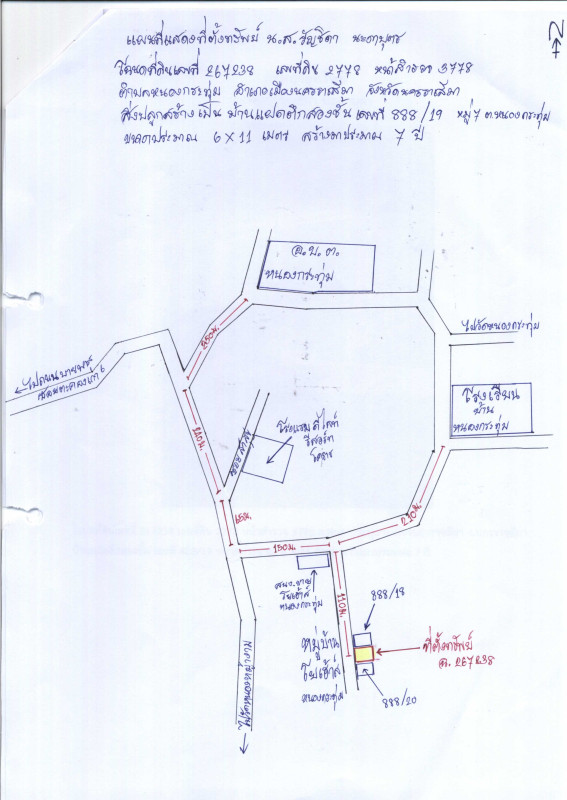 แผนที่แสดงที่ตั้งทรัพย์ น.ส. ขัญธิดา
โฉนดที่ดินเลขที่ 267238 เลขที่ดิน 2778 หน้าสำรวจ 3778
ตำบลหนองกระทุ่ม อำเภอเมืองนครราชสีมา จังหวัดนครราชสีมา
สิ่งปลูกสร้างเป็น บ้านแฝดตึกสองชั้น เลขที่ 888/19 หมู่7 ต.หนองกระทุ่ม
ขนาดประมาณ 6 x 11 เมตร สร้างมาประมาณ 7 ปี
อ.บ.ต.
หนองกระทุ่ม
ไปวัดหนองกระทุ่ม
ไปถนนบายพาส
โรงเรียน
บ้าน
หนองกระทุ่ม
450ม.
240ม.
โรงแรม
รีสอร์ท
โคราช
65ม.
150ม.
220ม.
110ม.
หนองกระทุ่ม
หมู่บ้าน
โบ๊เฮ้าส์
หนองกระทุ่ม
888/18
ที่ตั้งทรัพย์
ฉ. 267238
888/20